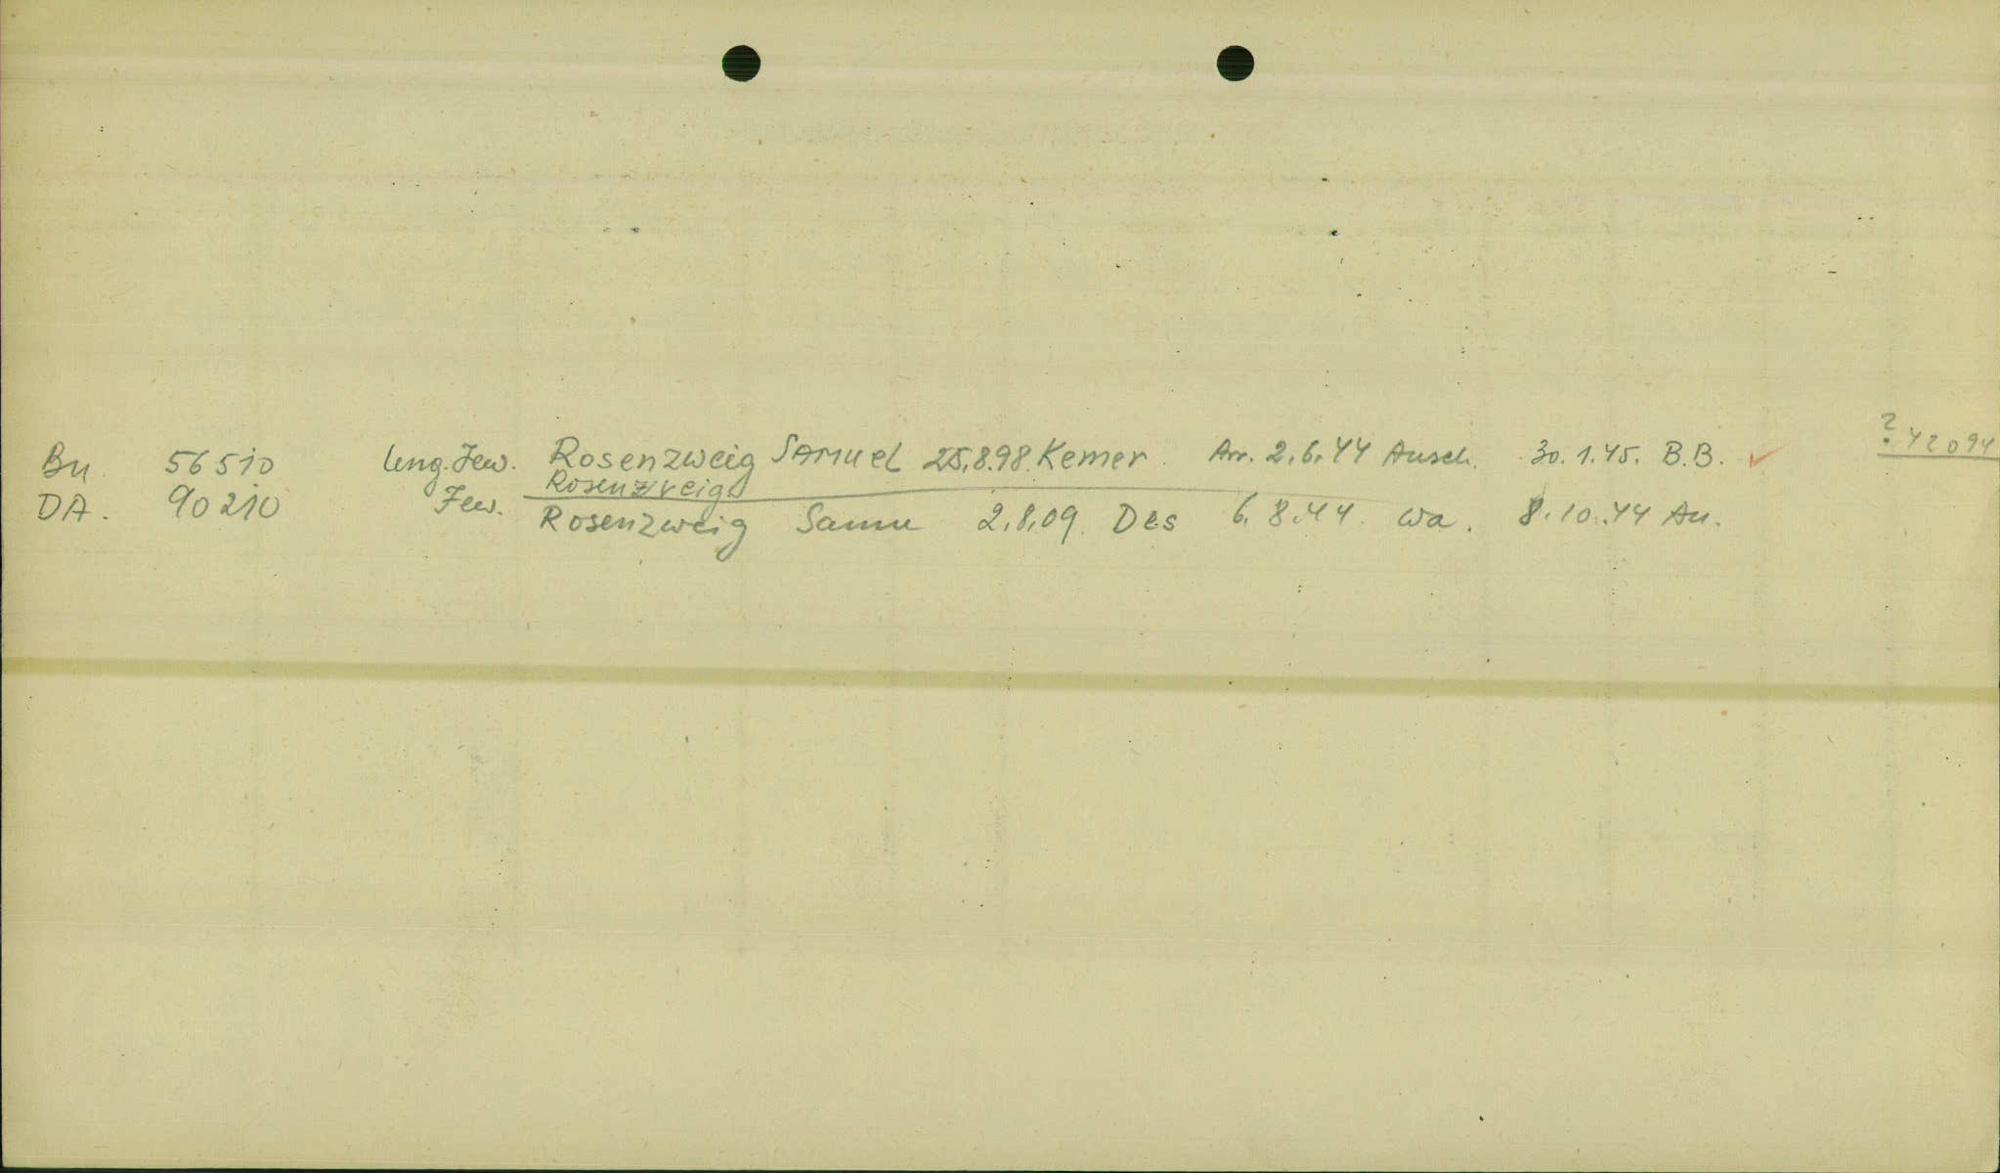 Bu. 56510 Ung. Jew. Rosenzweig SAMUEL 25.8.98. Kemer. Arr. 2.6.44 Ausch. 30.1.45. B.B. ✓ ? 42094
Rosenzweig
DA. 90210 Jew. Rosenzweig Samu 2.8.09. Des 6.8.44. Wa. 8.10.44 Au.